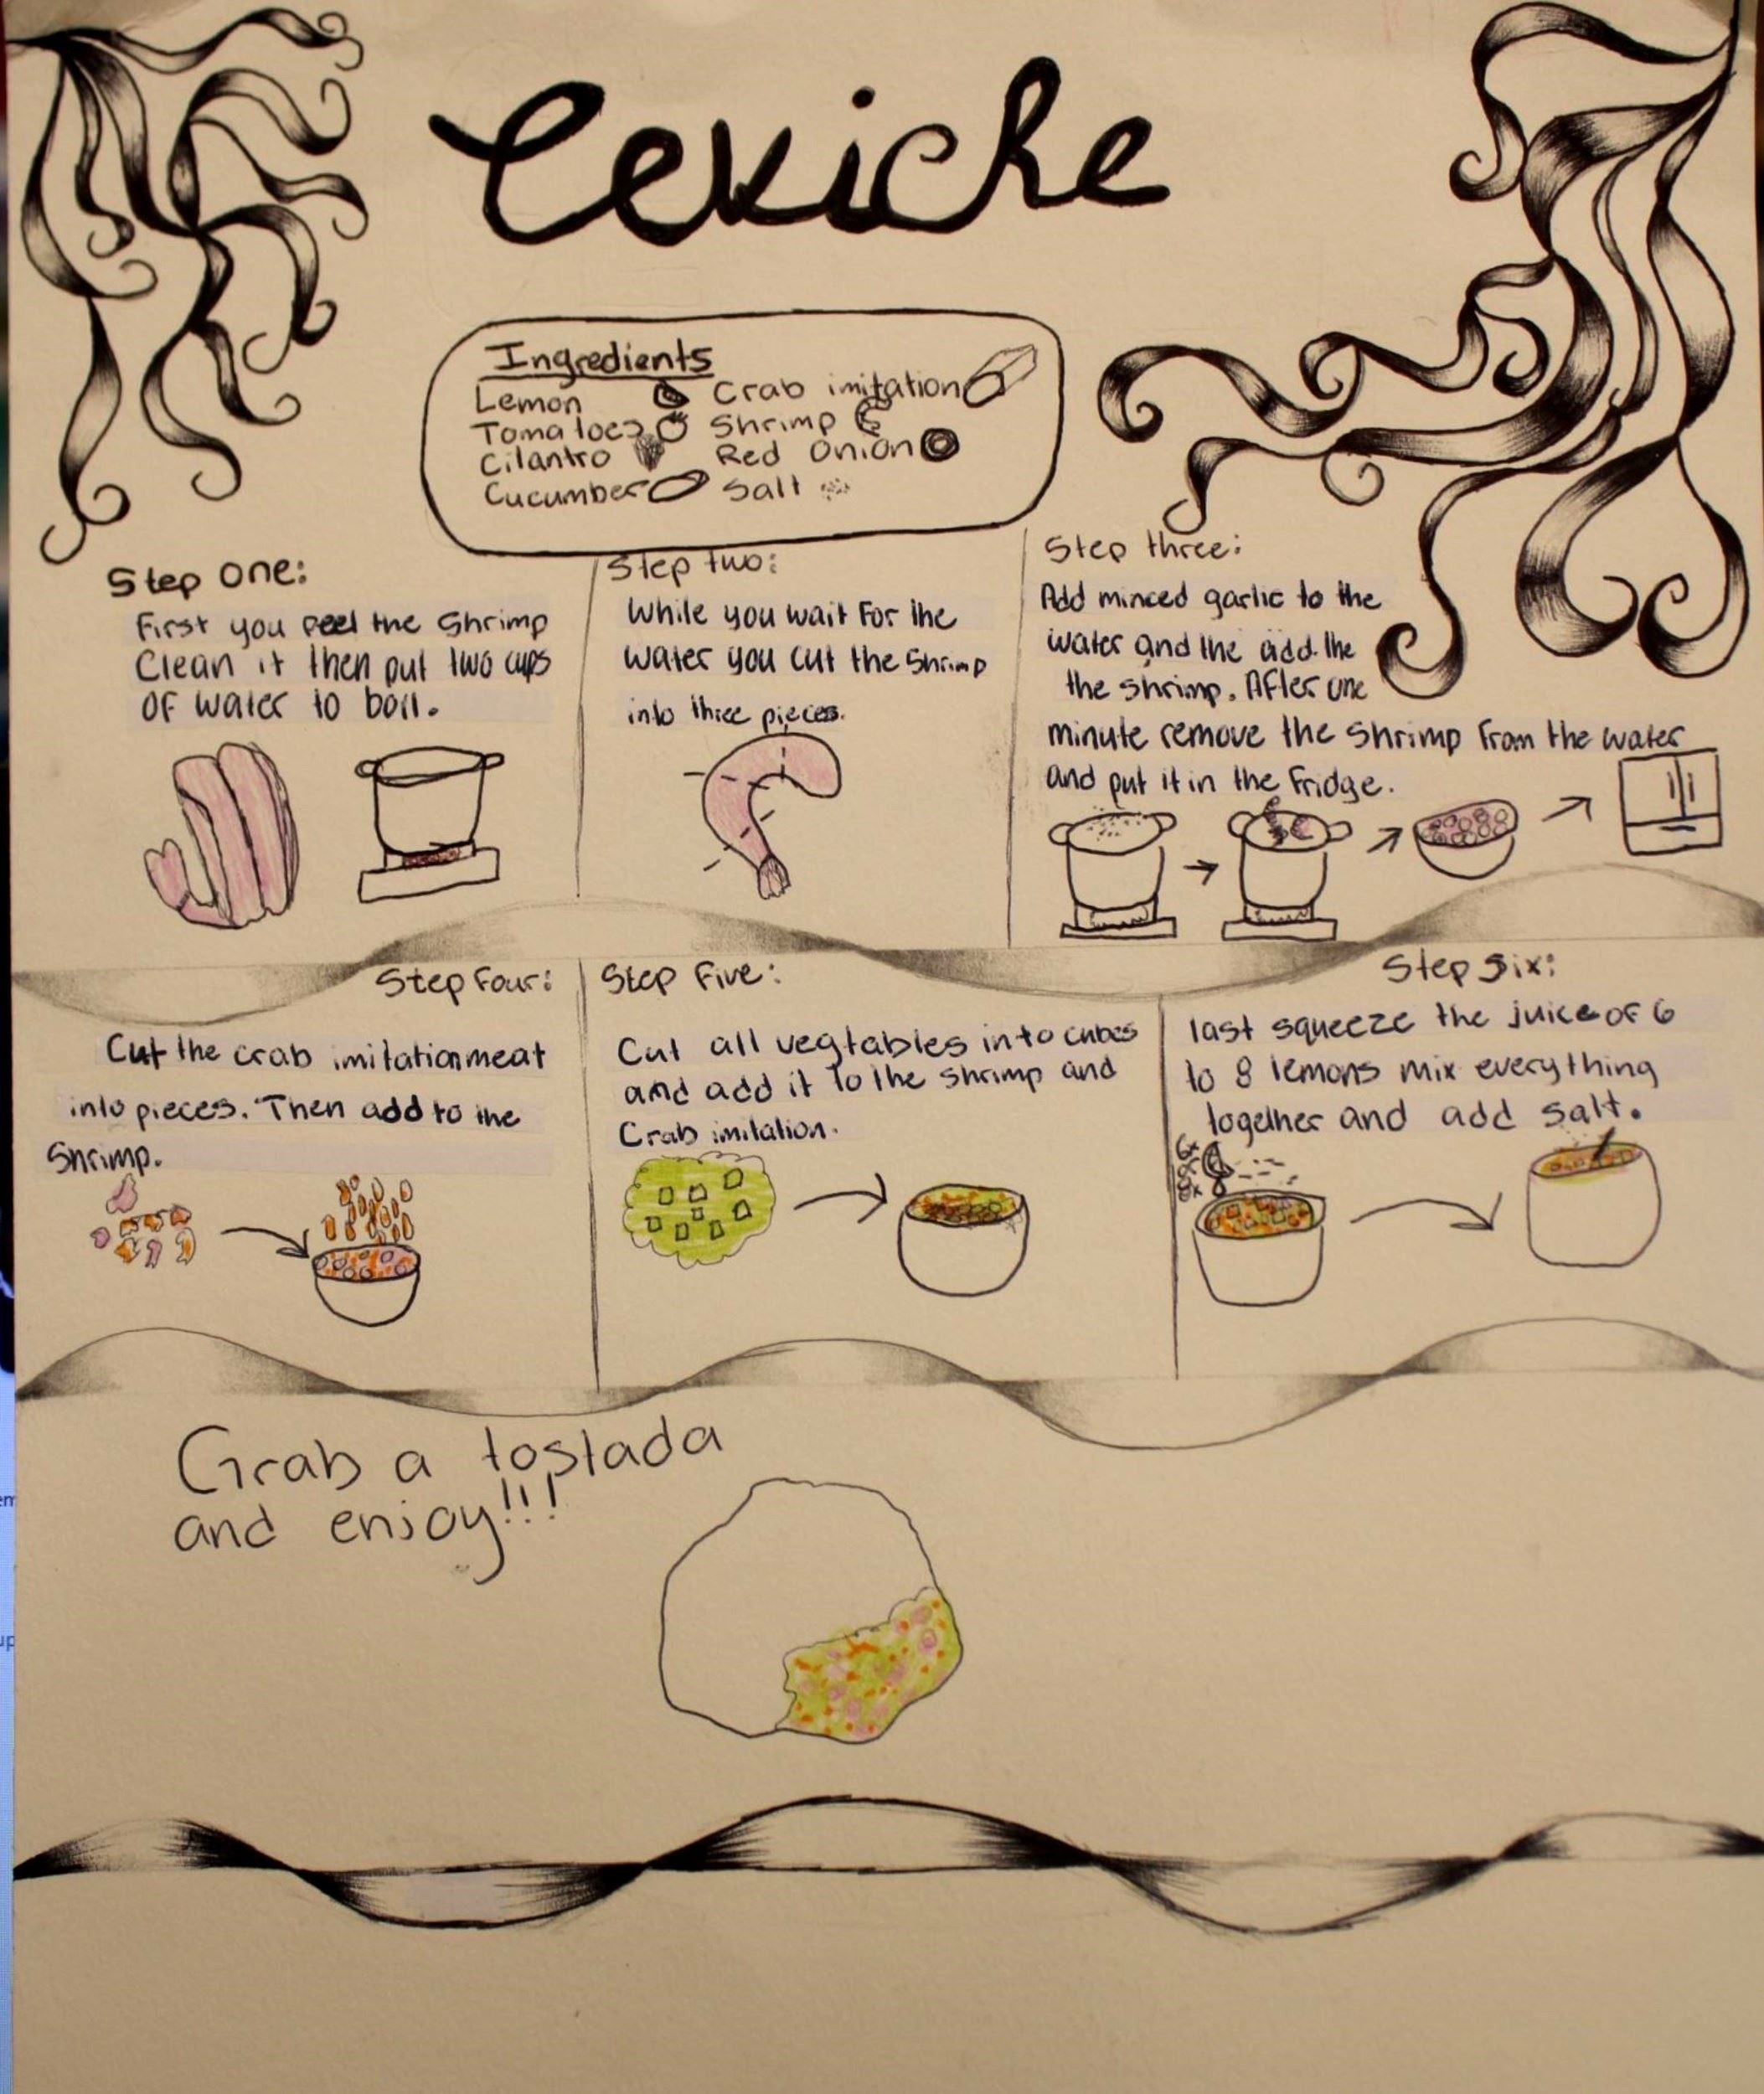 Ceviche
Ingredients
Lemon
Tomatoes
Cilantro
Cucumber
Crab imitation
Shrimp
Red Onion
Salt
Step one:
First you peel the Shrimp
Clean it then put two cups
OF water to boil.
Step two:
While you wait For the
water you cut the Shrimp
into three pieces.
Step three:
Add minced garlic to the
water and the add the
the shrimp. AFter one
minute remove the shrimp From the water
and put it in the Fridge.
Step Four:
Cut the crab imitation meat
into pieces. Then add to the
Shrimp.
Step Five:
Cut all vegtables into cubes
and add it to the shrimp and
Crab imitation.
Step Six:
last squeeze the juice OF 6
to 8 lemons mix everything
together and add salt.
6x
8x
Grab a tostada
and enjoy!!!